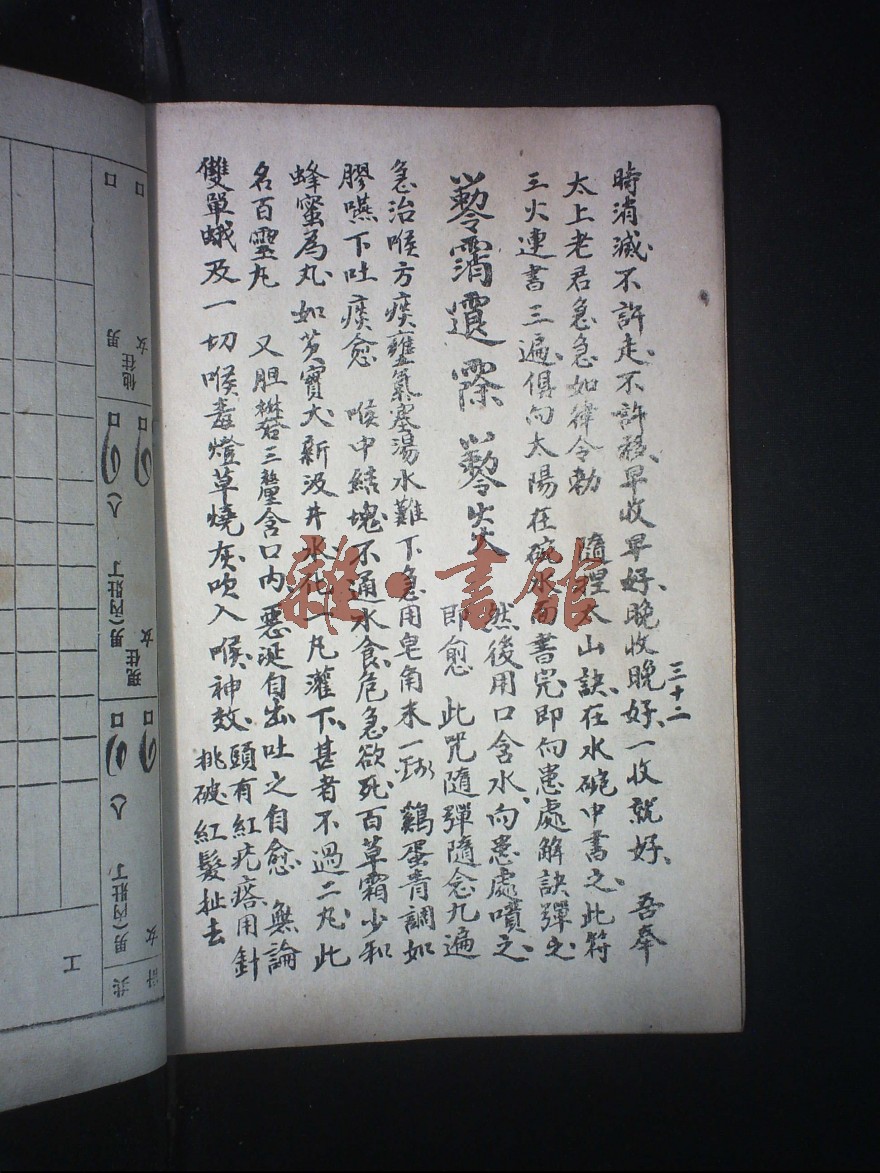 三十二
時消滅不許走不許移早收早好晚收晚好一收就好 吾奉
太上老君急急如律令勅 隨捏太山訣在水碗中書之此符
三火連書三遍俱向太陽在碗水面書完即向患處解訣彈之
然後用口含水向患處噴之
即愈 此咒隨彈隨念九遍
急治喉方痰壅氣塞湯水難下急用皂角末一 鷄蛋青調如
膠嚥下吐痰愈 喉中結塊不通水食危急欲死百草霜少和
蜂蜜為丸如芡實大新汲井水化一丸灌下甚者不過二丸此
名百靈丸 又胆礬三釐含口內惡涎自出吐之自愈 無論
雙單蛾及一切喉毒燈草燒灰吹入喉神效頭有紅疙瘩用針
挑破紅髮扯去
雜·書館
口 口
他住 男 女
口 口
現住 男(內壯丁 人) 女
口 口
共計 男(內壯丁 人) 女
工